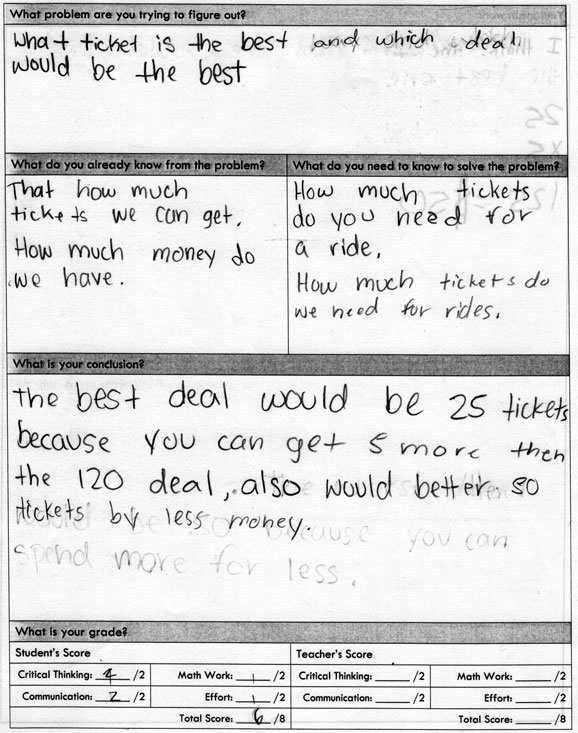 What problem are you trying to figure out?
What ticket is the best and which deal
would be the best
What do you already know from the problem?
That how much
tickets we can get.
How much money do
we have.
What do you need to know to solve the problem?
How much tickets
do you need for
a ride.
How much tickets do
we need for rides.
What is your conclusion?
the best deal would be 25 tickets
because you can get 5 more then
the 120 deal, also would better. 50
tickets by less money.
would be 50 because you can
spend more for less.
What is your grade?
Student's Score
Critical Thinking: /2 Math Work: 1 /2
Communication: 2 /2 Effort: 1 /2
Total Score: 6 /8
Teacher's Score
Critical Thinking: /2 Math Work: /2
Communication: /2 Effort: /2
Total Score: /8